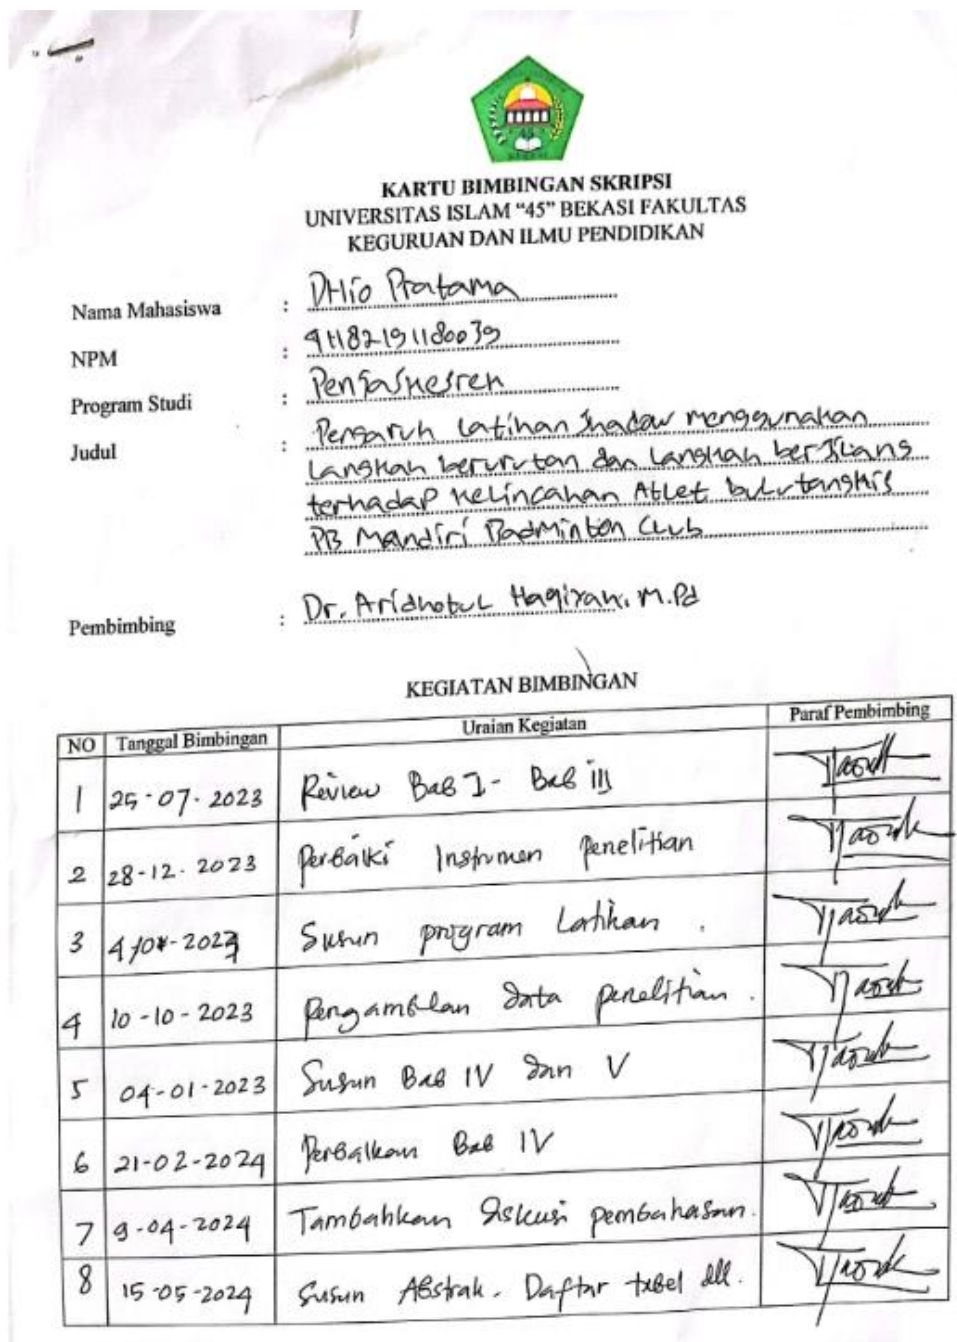 KARTU BIMBINGAN SKRIPSI
UNIVERSITAS ISLAM “45” BEKASI FAKULTAS
KEGURUAN DAN ILMU PENDIDIKAN
Nama Mahasiswa : DHio Pratama
NPM : 41182191180039
Program Studi : Penjaskesrek
Judul : Pengaruh Latihan Shadow menggunakan
Langkah berurutan dan Langkah bersilang
terhadap kelincahan Atlet bulutangkis
PB Mandiri Badminton Club
Pembimbing : Dr. Aridhotul Haqiyah, M.Pd
KEGIATAN BIMBINGAN
NO Tanggal Bimbingan Uraian Kegiatan Paraf Pembimbing
1 25-07-2023 Review Bab I - Bab III
2 28-12-2023 Perbaiki Instrumen penelitian
3 Susun program Latihan.
4 10-10-2023 Pengambilan data penelitian.
5 04-01-2023 Susun Bab IV dan V
6 21-02-2024 Perbaikan Bab IV
7 9-04-2024 Tambahkan diskusi pembahasan.
8 15-05-2024 Susun Abstrak. Daftar tabel dll.